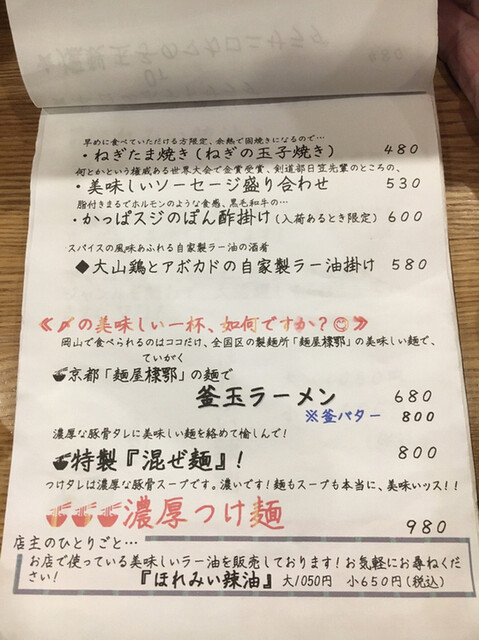 早めに食べていただける方限定、余熱で固焼きになるので…
・ねぎたま焼き(ねぎの玉子焼き) 480
何とかという権威ある世界大会で金賞受賞、剣道部日笠先輩のところの、
・美味しいソーセージ盛り合わせ 530
脂付きまるでホルモンのような食感、黒毛和牛の…
・かっぱスジのぽん酢掛け(入荷あるとき限定) 600
スパイスの風味あふれる自家製ラー油の酒肴
◆大山鶏とアボカドの自家製ラー油掛け 580
≪〆の美味しい一杯、如何ですか?😋≫
岡山で食べられるのはココだけ、全国区の製麺所「麺屋棣鄂」の美味しい麺で、
ていがく
🍜京都「麺屋棣鄂」の麺で
釜玉ラーメン 680
※釜バター 800
濃厚な豚骨タレに美味しい麺を絡めて愉しんで!
🍜特製『混ぜ麺』! 800
つけタレは濃厚な豚骨スープです。濃いです!麺もスープも本当に、美味いッス!!
🍜🍜🍜濃厚つけ麺 980
店主のひとりごと…
お店で使っている美味しいラー油を販売しております!お気軽にお尋ねくだ
さい! 『ほれみい辣油』 大1050円 小650円(税込)